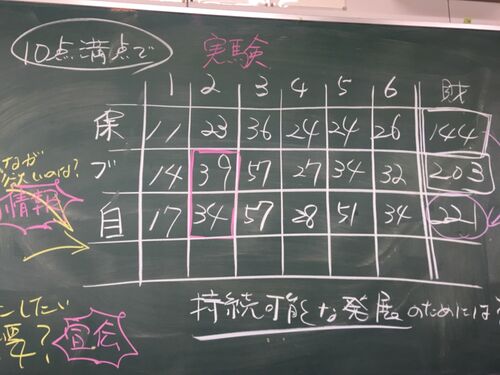 10点満点で
実験
1 2 3 4 5 6 財
保 11 23 36 24 24 26 144
ブ 14 39 57 27 34 32 203
自 17 34 57 28 51 34 221
なが
情報
持続可能な発展のためには?
にしたい
要?
宣伝